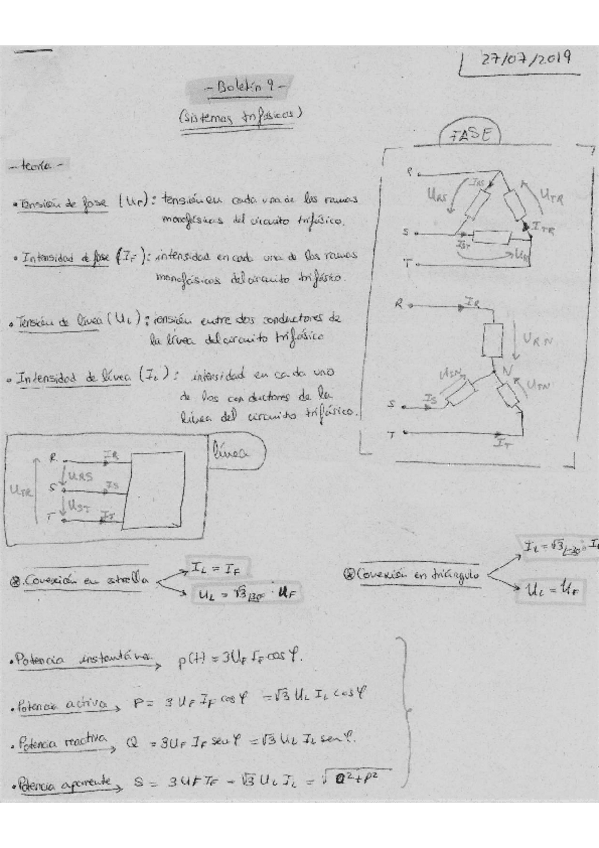 27/07/2019
- Boletín 9 -
(Sistemas trifásicos)
- teoría -
• Tensión de fase (UF): tensión en cada una de las ramas
monofásicas del circuito trifásico.
• Intensidad de fase (IF): intensidad en cada una de las ramas
monofásicas del circuito trifásico.
• Tensión de línea (UL): tensión entre dos conductores de
la línea del circuito trifásico
• Intensidad de línea (IL): intensidad en cada uno
de los conductores de la
línea del circuito trifásico.
FASE
R
URS
IRS
UTR
ITR
S
IST
T
R
IR
URN
N
USN
UTN
S
IS
T
IT
línea
R
IR
URS
UTR
S
IS
UST
T
IT
⊛ Conexión en strella
IL = IF
UL = √3 |30° · UF
⊛ Conexión en triángulo
IL = √3 |-30° ·
UL = UF
• Potencia instantánea p(t) = 3UF IF cos φ.
• Potencia activa P = 3 UF IF cos φ = √3 UL IL cos φ
• Potencia reactiva Q = 3UF IF sen φ = √3 UL IL sen φ.
• Potencia aparente S = 3UF IF = √3 UL IL = √Q²+P²